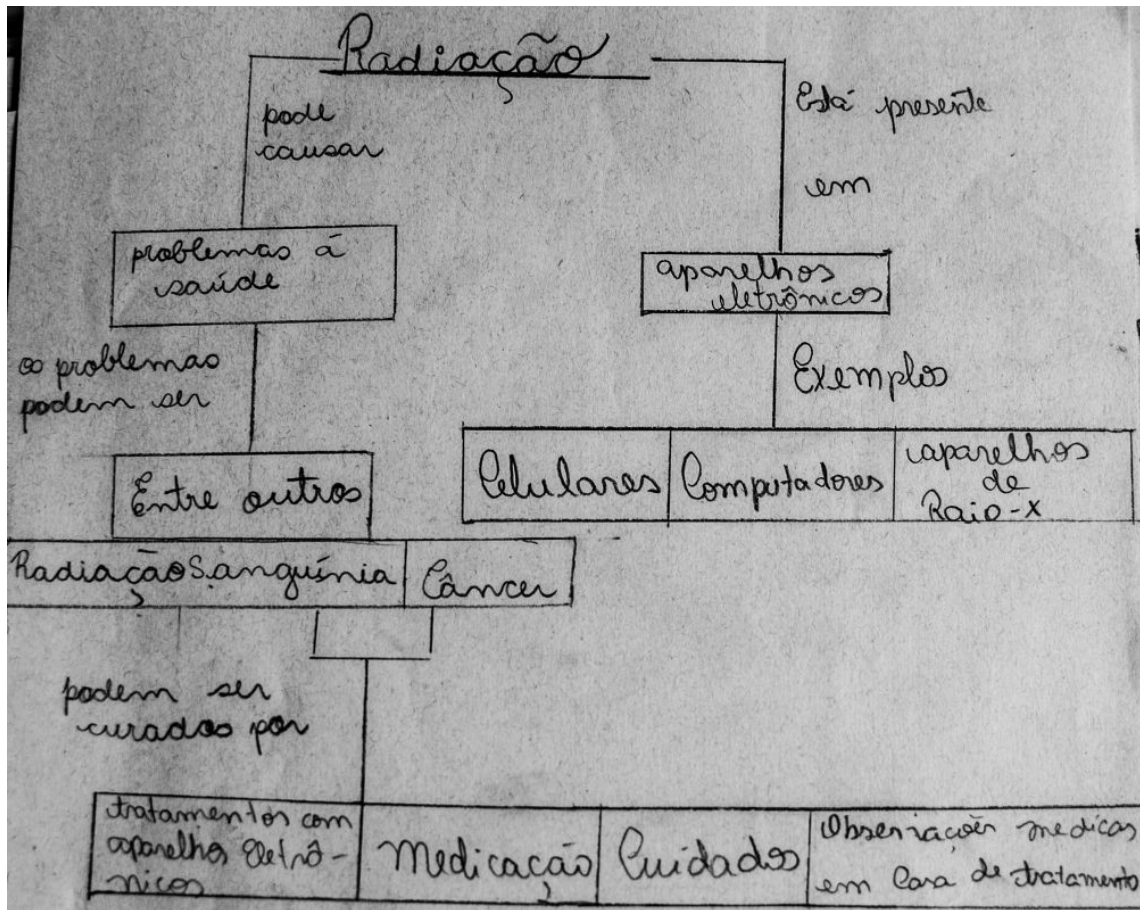 Radiação
pode
causar
Está presente
em
problemas á
saúde
aparelhos
eletrônicos
os problemas
podem ser
Exemplos
Entre outros
Celulares
Computadores
aparelhos
de
Raio-x
Radiação Sanguínia
Câncer
podem ser
curados por
tratamentos com
aparelhos Eletrô-
nicos
Medicação
Cuidados
Observações medicas
em Casa de tratamento